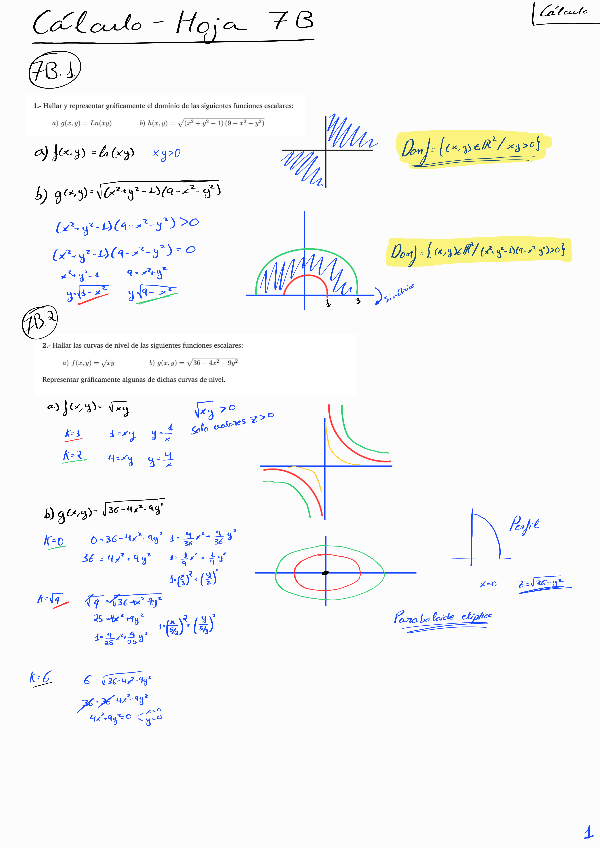 Cálculo - Hoja 7B
Cálculo
7B.1
1.- Hallar y representar gráficamente el dominio de las siguientes funciones escalares:
a) g(x,y) = Ln(xy) b) h(x,y) = √(x² + y² − 1)(9 − x² − y²)
a) f(x,y) = ln(xy) xy>0
Dom f = {(x,y) ∈ ℝ² / xy>0}
b) g(x,y) = √(x²+y²-1)(9-x²-y²)
(x²+y²-1)(9-x²-y²) > 0
(x²+y²-1)(9-x²-y²) = 0
Dom f = {(x,y) ∈ ℝ² / (x²+y²-1)(9-x²-y²) > 0}
x²+y²=1 9=x²+y²
y=√1-x² y√9-x²
1 3
7B.2
2.- Hallar las curvas de nivel de las siguientes funciones escalares:
a) f(x,y) = √xy b) g(x,y) = √36 − 4x² − 9y²
Representar gráficamente algunas de dichas curvas de nivel.
a) f(x,y) = √xy √xy > 0
Solo valores z>0
K=1 1=xy y=1/x
K=2 4=xy y=4/x
b) g(x,y) = √36-4x²-9y²
K=0 0=36-4x²-9y² 1=4/36 x²+9/36 y²
36 = 4x²+9y² 1=1/9 x²+1/4 y²
1=(x/3)²+(y/2)²
Perfil
x=0 z=√36-9y²
K=√9 √9=√36-4x²-9y²
25=4x²+9y² 1=(x/5/2)²+(y/5/3)²
1=4/25 x²+9/25 y²
Paraboloide elíptico
K=6 6 √36-4x²-9y²
36=36-4x²-9y²
4x²+9y²=0 x=0
y=0
1